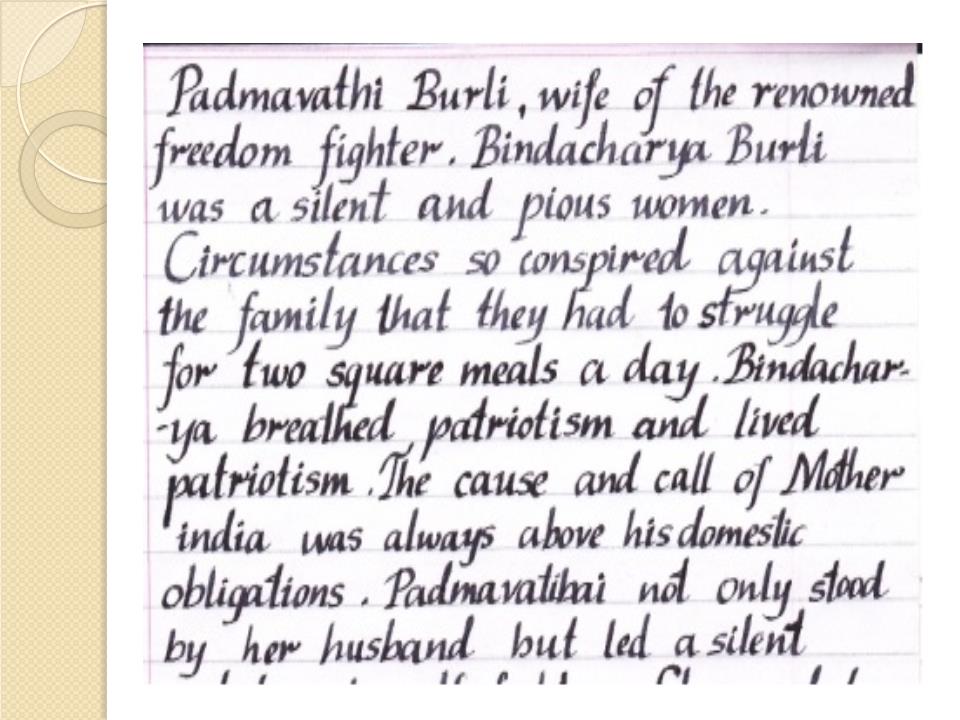 Padmavathi Burli, wife of the renowned
freedom fighter. Bindacharya Burli
was a silent and pious women.
Circumstances so conspired against
the family that they had to struggle
for two square meals a day. Bindachar-
-ya breathed, patriotism and lived
patriotism. The cause and call of Mother
india was always above his domestic
obligations. Padmavatibai not only stood
by her husband but led a silent